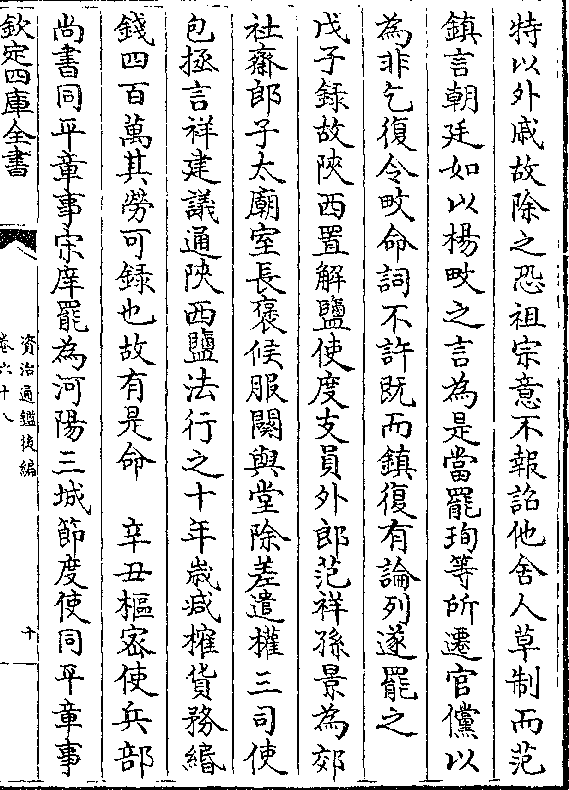 特以外戚故除之恐祖宗意不報詔他舍人草制而范
鎮言朝廷如以楊畋之言為是當罷珣等所遷官儻以
為非乞復令畋命詞不許既而鎮復有論列遂罷之
戊子録故陜西置解鹽使度支員外郎范祥孫景為郊
社齋郎子太廟室長褒候服闋與堂除差遣權三司使
包拯言祥建議通陜西鹽法行之十年歲減㩁貨務緡
錢四百萬其勞可録也故有是命　辛丑樞密使兵部
尚書同平章事宋庠罷為河陽三城節度使同平章事
欽定四庫全書
資治通鑑後編
卷六十八
十